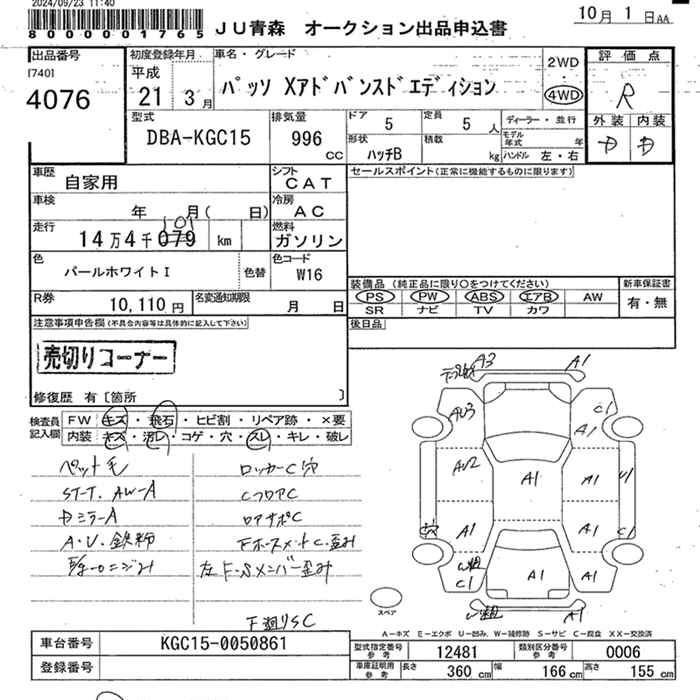 2024/09/23 11:40
8000001765
JU青森 オークション出品申込書
10月1日AA
出品番号
[740]
4076
初度登録年月
平成
21 3月
車名・グレード
パッソ Xアドバンスドエディション
2WD
・
4WD
評価点
R
外装 内装
D D
型式
DBA-KGC15
排気量
996
cc
ドア
5
定員
5人
ディーラー・並行
形状
ハッチB
積載
kg
モデル年式 年
ハンドル 左・右
車歴
自家用
シフト
CAT
セールスポイント(正常に機能するものに限ります)
車検
年 月( 日)
冷房
AC
走行
101
14万4千079 km
燃料
ガソリン
色
パールホワイトI
色替
色コード
W16
装備品(純正品に限り○をつけてください)
新車保証書
PS PW ABS エアB AW
有・無
SR ナビ TV カワ
R券
10,110円
名変通知期限
月 日
後日品
注意事項申告欄(不具合内容等は具体的に記入して下さい)
売切りコーナー
修復歴 有[箇所 ]
検査員記入欄
FW キズ・飛石・ヒビ割・リペア跡・×要
内装 キズ・汚レ・コゲ・穴・スレ・キレ・破レ
ペット毛
ST-T. AW-A
DミラーA
A・U・鉄粉
ロッカーC穴
CフロアC
ロアサポC
左F・Sメンバー歪み
F廻りSC
A3
A1
AU3
C1
A1
AU2
A1
A1
U1
穴
A1
A1
C1
C1
A1
A1
A1
スペア
A-キズ E-エクボ U-凹み W-補修跡 S-サビ C-腐食 XX-交換済
車台番号
KGC15-0050861
登録番号
型式指定番号 参考
12481
類別区分番号 参考
0006
車庫証明用 参考
長さ 360cm
幅 166cm
高さ 155cm